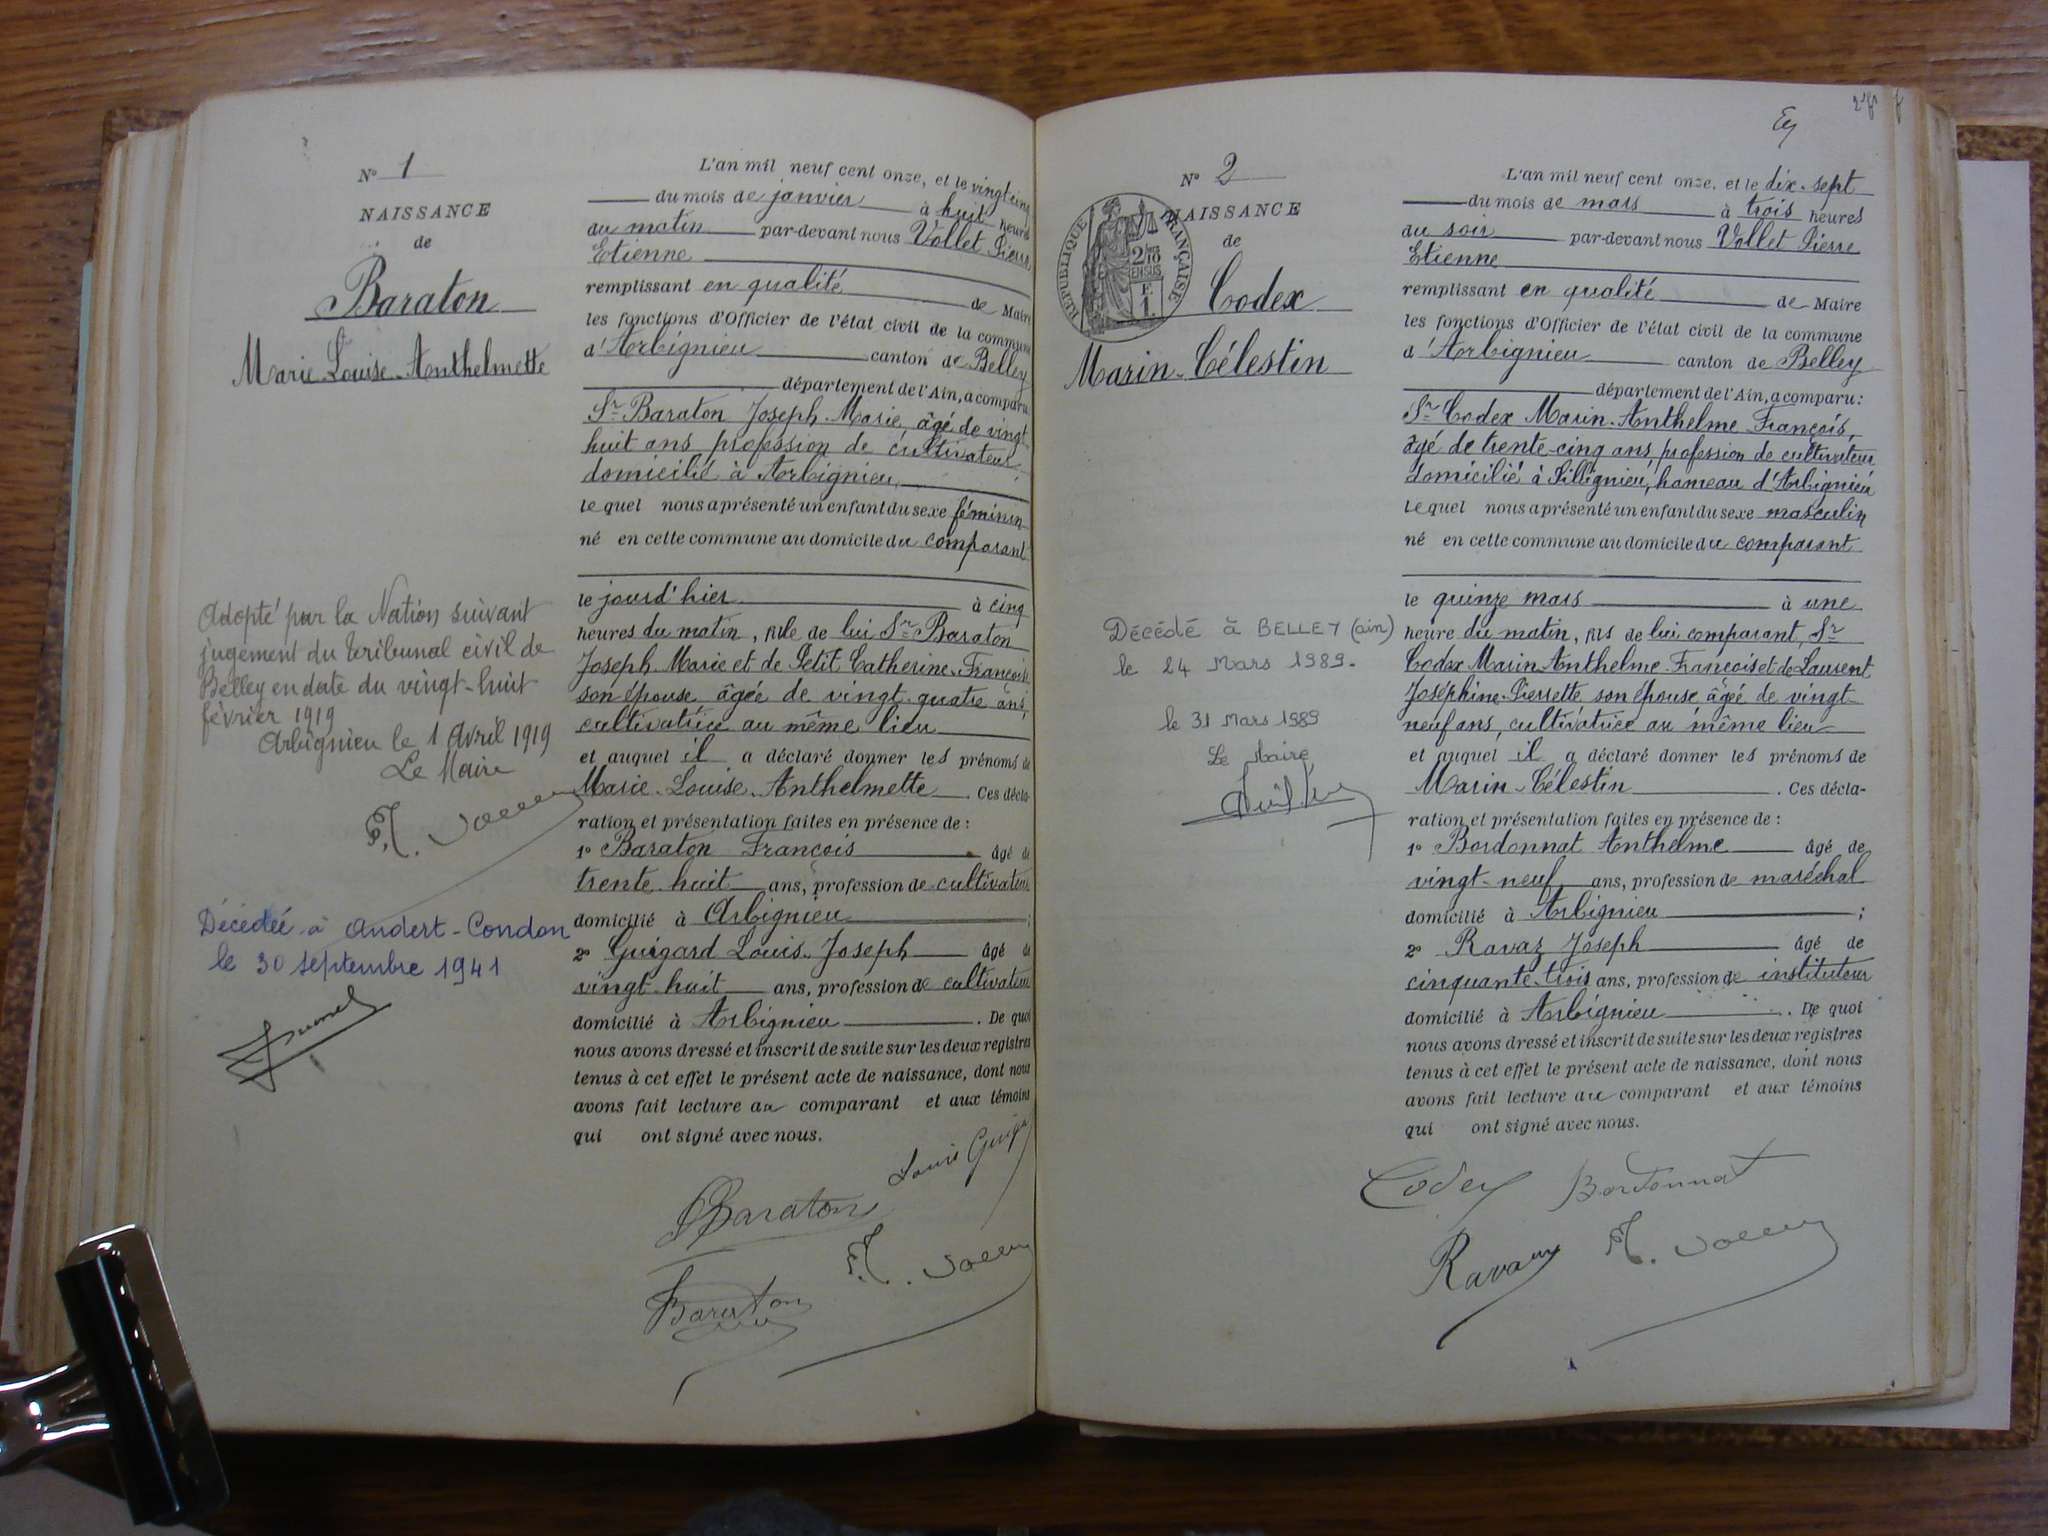 N° 1
NAISSANCE
de
Baraton
Marie-Louise-Anthelmette
Adopté par la Nation suivant
jugement du Tribunal civil de
Belley en date du vingt-huit
février 1919
Arbignieu le 1 Avril 1919
Le Maire
Décédée à Andert-Condon
le 30 septembre 1941
L'an mil neuf cent onze, et le vingt cinq
du mois de janvier à huit heures
du matin par-devant nous Vollet Pierre
Etienne
remplissant en qualité de Maire
les fonctions d'Officier de l'état civil de la commune
d'Arbignieu canton de Belley
département de l'Ain, a comparu
Sr Baraton Joseph-Marie, âgé de vingt
huit ans profession de cultivateur
domicilié à Arbignieu,
lequel nous a présenté un enfant du sexe féminin
né en cette commune au domicile du comparant
le jourd'hier à cinq
heures du matin, fille de lui Sr Baraton
Joseph Marie et de Petit Catherine-Françoise
son épouse âgée de vingt-quatre ans,
cultivatrice au même lieu
et auquel il a déclaré donner les prénoms de
Marie-Louise-Anthelmette. Ces décla-
ration et présentation faites en présence de :
1° Baraton François âgé de
trente huit ans, profession de cultivateur
domicilié à Arbignieu ;
2° Guigard Louis-Joseph âgé de
vingt-huit ans, profession de cultivateur
domicilié à Arbignieu. De quoi
nous avons dressé et inscrit de suite sur les deux registres
tenus à cet effet le présent acte de naissance, dont nous
avons fait lecture au comparant et aux témoins
qui ont signé avec nous.
Louis
Baraton
Baraton
N° 2
NAISSANCE
de
RÉPUBLIQUE FRANÇAISE
2/10
EN SUS
F.
1.
Codex
Marin-Célestin
Décédé à BELLEY (ain)
le 24 Mars 1989.
le 31 Mars 1989
Le Maire
L'an mil neuf cent onze, et le dix-sept
du mois de mars à trois heures
du soir par-devant nous Vollet Pierre
Etienne
remplissant en qualité de Maire
les fonctions d'Officier de l'état civil de la commune
d'Arbignieu canton de Belley
département de l'Ain, a comparu :
Sr Codex Marin-Anthelme-François,
âgé de trente-cinq ans, profession de cultivateur
domicilié à Sillignieu, hameau d'Arbignieu
lequel nous a présenté un enfant du sexe masculin
né en cette commune au domicile du comparant
le quinze mars à une
heure du matin, fils de lui comparant, Sr
Codex Marin-Anthelme-François et de Laurent
Joséphine-Pierrette, son épouse âgé de vingt-
neuf ans, cultivatrice au même lieu
et auquel il a déclaré donner les prénoms de
Marin-Célestin. Ces décla-
ration et présentation faites en présence de :
1° Bordonnat Anthelme âgé de
vingt-neuf ans, profession de maréchal
domicilié à Arbignieu ;
2° Ravaz Joseph âgé de
cinquante-trois ans, profession de instituteur
domicilié à Arbignieu. De quoi
nous avons dressé et inscrit de suite sur les deux registres
tenus à cet effet le présent acte de naissance, dont nous
avons fait lecture au comparant et aux témoins
qui ont signé avec nous.
Codex Bordonnat
Ravaz